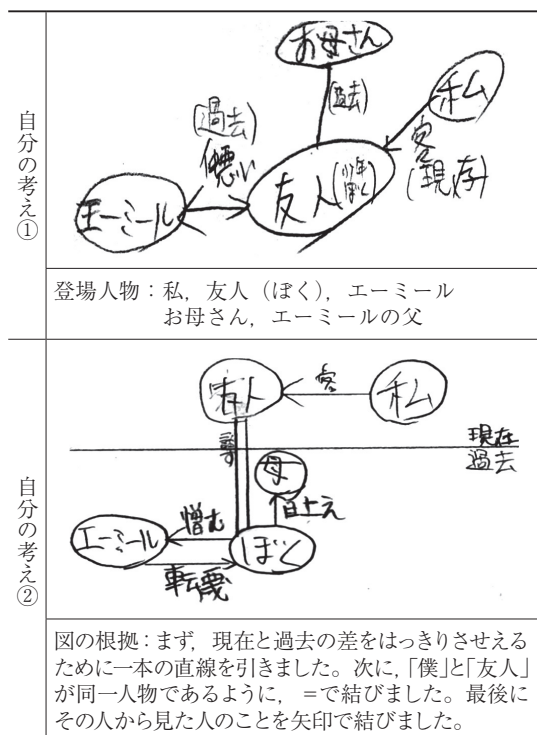 自分の考え①
お母さん
(過去)
私
客
(現存)
(過去)
友人
エーミール
登場人物：私，友人（ぼく），エーミール
お母さん，エーミールの父
自分の考え②
友人
客
私
現在
過去
母
エーミール
憎む
ぼく
転機
図の根拠：まず，現在と過去の差をはっきりさせえる
ために一本の直線を引きました。次に，「僕」と「友人」
が同一人物であるように，＝で結びました。最後に
その人から見た人のことを矢印で結びました。